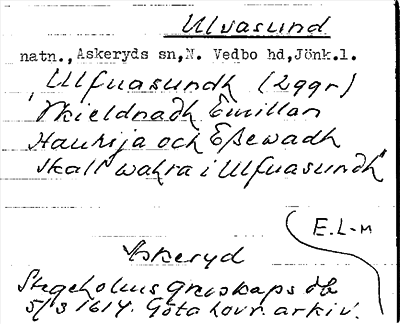 Ulvasund
natn., Askeryds sn, N. Vedbo hd, Jönk.l.
"Ulfuasundh (2ggr)
Skieldnadh Emillan
Hauksja och Eßewadh
skall wahra i Ulfuasundh"
Askeryd
Stegeholms grevskaps db
5/3 1614. Göta hovr. arkiv.
E.L-m